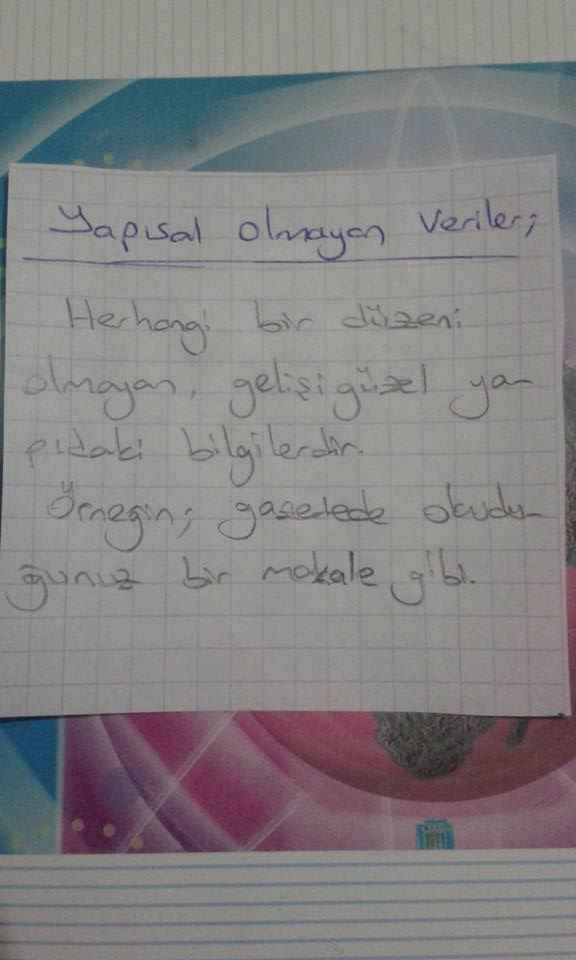 Yapısal olmayan veriler;
Herhangi bir düzeni
olmayan, gelişigüzel ya-
pıdaki bilgilerdir.
Örneğin; gazetede okudu-
ğunuz bir makale gibi.